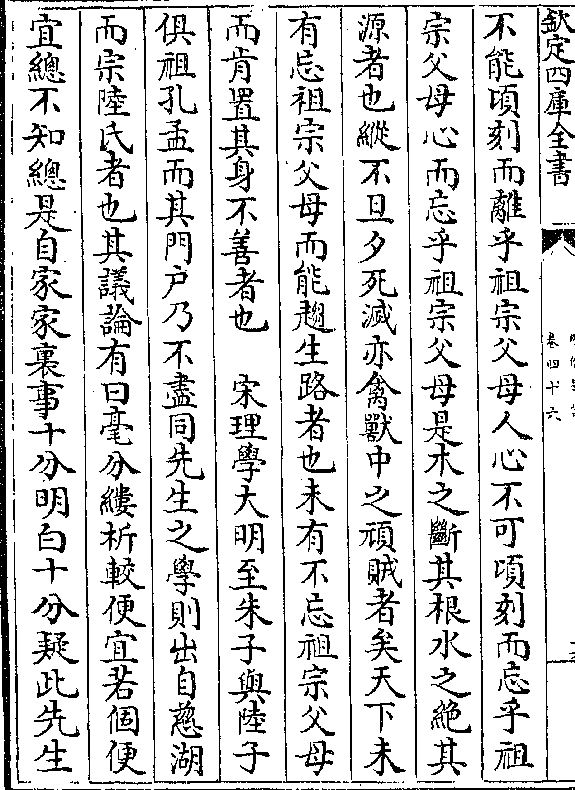 欽定四庫全書
卷四十六
不能頃刻而離乎祖宗父母人心不可頃刻而忘乎祖
宗父母心而忘乎祖宗父母是木之斷其根水之絶其
源者也縱不旦夕死滅亦禽獸中之頑賊者矣天下未
有忘祖宗父母而能趨生路者也未有不忘祖宗父母
而肯置其身不善者也　宋理學大明至朱子與陸子
俱祖孔孟而其門户乃不盡同先生之學則出自慈湖
而宗陸氏者也其議論有曰毫分縷析較便宜若個便
宜總不知總是自家家裏事十分明白十分疑此先生